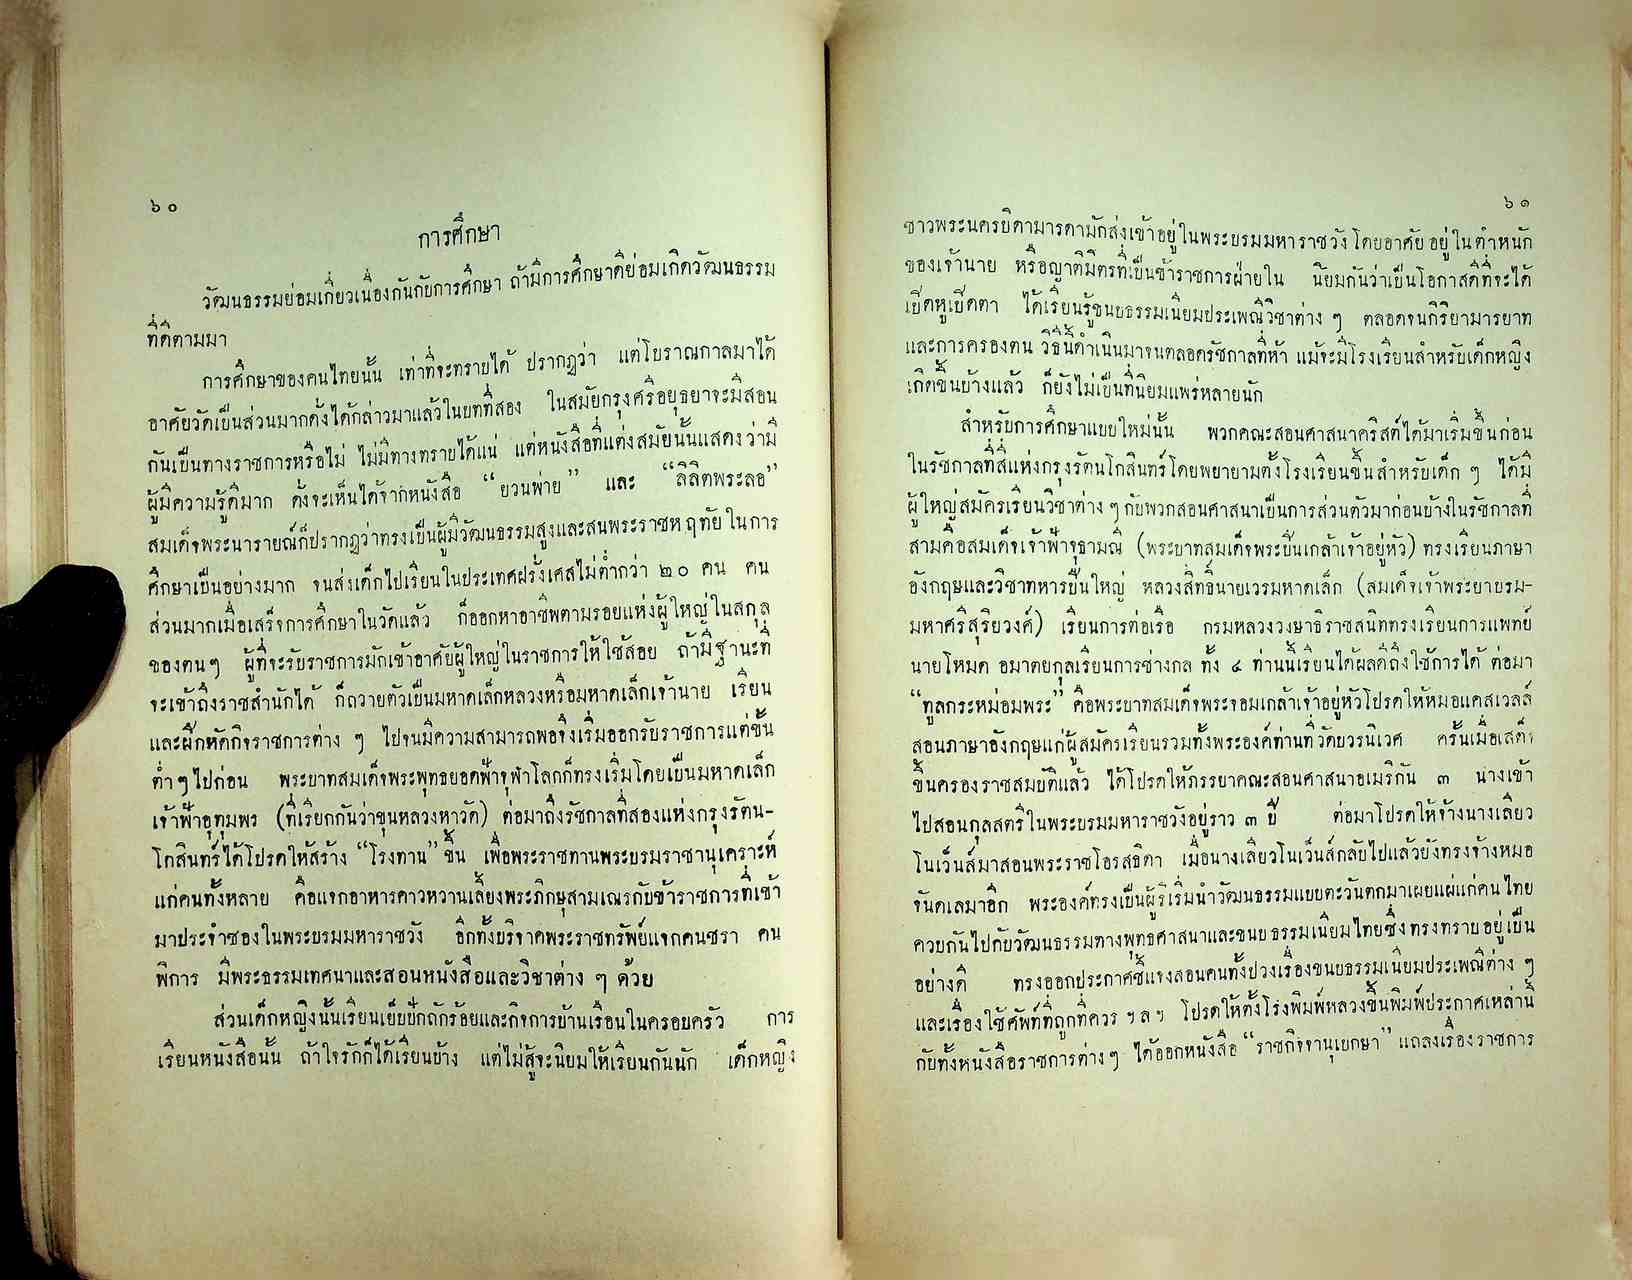 ๖๐
การศึกษา
วัฒนธรรมย่อมเกี่ยวเนื่องกันกับการศึกษา ถ้ามีการศึกษาดีย่อมเกิดวัฒนธรรม
ที่ดีตามมา
การศึกษาของคนไทยนั้น เท่าที่จะทราบได้ ปรากฏว่า แต่โบราณกาลมาได้
อาศัยวัดเป็นส่วนมากดังได้กล่าวมาแล้วในบทที่สอง ในสมัยกรุงศรีอยุธยาจะมีสอน
กันเป็นทางราชการหรือไม่ ไม่มีทางทราบได้แน่ แต่หนังสือที่แต่งสมัยนั้นแสดงว่ามี
ผู้มีความรู้ดีมาก ดังจะเห็นได้จากหนังสือ “ยวนพ่าย” และ “ลิลิตพระลอ”
สมเด็จพระนารายณ์ก็ปรากฏว่าทรงเป็นผู้มีวัฒนธรรมสูงและสนพระราชหฤทัยในการ
ศึกษาเป็นอย่างมาก จนส่งเด็กไปเรียนในประเทศฝรั่งเศสไม่ต่ำกว่า ๒๐ คน คน
ส่วนมากเมื่อเสร็จการศึกษาในวัดแล้ว ก็ออกหาอาชีพตามรอยแห่งผู้ใหญ่ในสกุล
ของตนๆ ผู้ที่จะรับราชการมักเข้าอาศัยผู้ใหญ่ในราชการให้ใช้สอย ถ้ามีฐานะที่
จะเข้าถึงราชสำนักได้ ก็ถวายตัวเป็นมหาดเล็กหลวงหรือมหาดเล็กเจ้านาย เรียน
และฝึกหัดกิจราชการต่าง ๆ ไปจนมีความสามารถพอจึงเริ่มออกรับราชการแต่ขั้น
ต่ำๆไปก่อน พระบาทสมเด็จพระพุทธยอดฟ้าจุฬาโลกก็ทรงเริ่มโดยเป็นมหาดเล็ก
เจ้าฟ้าอุทุมพร (ที่เรียกกันว่าขุนหลวงหาวัด) ต่อมาถึงรัชกาลที่สองแห่งกรุงรัตน-
โกสินทร์ได้โปรดให้สร้าง “โรงทาน” ขึ้น เพื่อพระราชทานพระบรมราชานุเคราะห์
แก่คนทั้งหลาย คือแจกอาหารคาวหวานเลี้ยงพระภิกษุสามเณรกับข้าราชการที่เข้า
มาประจำซองในพระบรมมหาราชวัง อีกทั้งบริจาคพระราชทรัพย์แจกคนชรา คน
พิการ มีพระธรรมเทศนาและสอนหนังสือและวิชาต่าง ๆ ด้วย
ส่วนเด็กหญิงนั้นเรียนเย็บปักถักร้อยและกิจการบ้านเรือนในครอบครัว การ
เรียนหนังสือนั้น ถ้าใจรักก็ได้เรียนบ้าง แต่ไม่สู้จะนิยมให้เรียนกันนัก เด็กหญิง
๖๑
ชาวพระนครบิดามารดามักส่งเข้าอยู่ในพระบรมมหาราชวังโดยอาศัยอยู่ในตำหนัก
ของเจ้านาย หรือญาติมิตรที่เป็นข้าราชการฝ่ายใน นิยมกันว่าเป็นโอกาสดีที่จะได้
เปิดหูเปิดตา ได้เรียนรู้ขนบธรรมเนียมประเพณีวิชาต่าง ๆ ตลอดจนกิริยามารยาท
และการครองตน วิธีนี้ดำเนินมาจนตลอดรัชกาลที่ห้า แม้จะมีโรงเรียนสำหรับเด็กหญิง
เกิดขึ้นบ้างแล้ว ก็ยังไม่เป็นที่นิยมแพร่หลายนัก
สำหรับการศึกษาแบบใหม่นั้น พวกคณะสอนศาสนาคริสต์ได้มาเริ่มขึ้นก่อน
ในรัชกาลที่สี่แห่งกรุงรัตนโกสินทร์โดยพยายามตั้งโรงเรียนขึ้นสำหรับเด็กๆ ได้มี
ผู้ใหญ่สมัครเรียนวิชาต่าง ๆ กับพวกสอนศาสนาเป็นการส่วนตัวมาก่อนบ้างในรัชกาลที่
สามคือสมเด็จเจ้าฟ้าจุธามณี (พระบาทสมเด็จพระปิ่นเกล้าเจ้าอยู่หัว) ทรงเรียนภาษา
อังกฤษและวิชาทหารปืนใหญ่ หลวงสิทธิ์นายเวรมหาดเล็ก (สมเด็จเจ้าพระยาบรม-
มหาศรีสุริยวงศ์) เรียนการต่อเรือ กรมหลวงวงษาธิราชสนิททรงเรียนการแพทย์
นายโหมด อมาตยกุลเรียนการช่างกล ทั้ง ๔ ท่านนี้เรียนได้ผลดีถึงใช้การได้ ต่อมา
“ทูลกระหม่อมพระ” คือพระบาทสมเด็จพระจอมเกล้าเจ้าอยู่หัวโปรดให้หมอแคสเวลล์
สอนภาษาอังกฤษแก่ผู้สมัครเรียนรวมทั้งพระองค์ท่านที่วัดบวรนิเวศ ครั้นเมื่อเสด็จ
ขึ้นครองราชสมบัติแล้ว ได้โปรดให้ภรรยาคณะสอนศาสนาอเมริกัน ๓ นางเข้า
ไปสอนกุลสตรีในพระบรมมหาราชวังอยู่ราว ๓ ปี ต่อมาโปรดให้จ้างนางเลียว
โนเว็นส์มาสอนพระราชโอรสธิดา เมื่อนางเลียวโนเว็นส์กลับไปแล้วยังทรงจ้างหมอ
จันดเลมาอีก พระองค์ทรงเป็นผู้ริเริ่มนำวัฒนธรรมแบบตะวันตกมาเผยแผ่แก่คนไทย
ควบกันไปกับวัฒนธรรมทางพุทธศาสนาและขนบธรรมเนียมไทยซึ่งทรงทราบอยู่เป็น
อย่างดี ทรงออกประกาศชี้แจงสอนคนทั้งปวงเรื่องขนบธรรมเนียมประเพณีต่าง ๆ
และเรื่องใช้ศัพท์ที่ถูกที่ควร ฯลฯ โปรดให้ตั้งโรงพิมพ์หลวงขึ้นพิมพ์ประกาศเหล่านี้
กับทั้งหนังสือราชการต่างๆ ได้ออกหนังสือ “ราชกิจจานุเบกษา” แถลงเรื่องราชการ